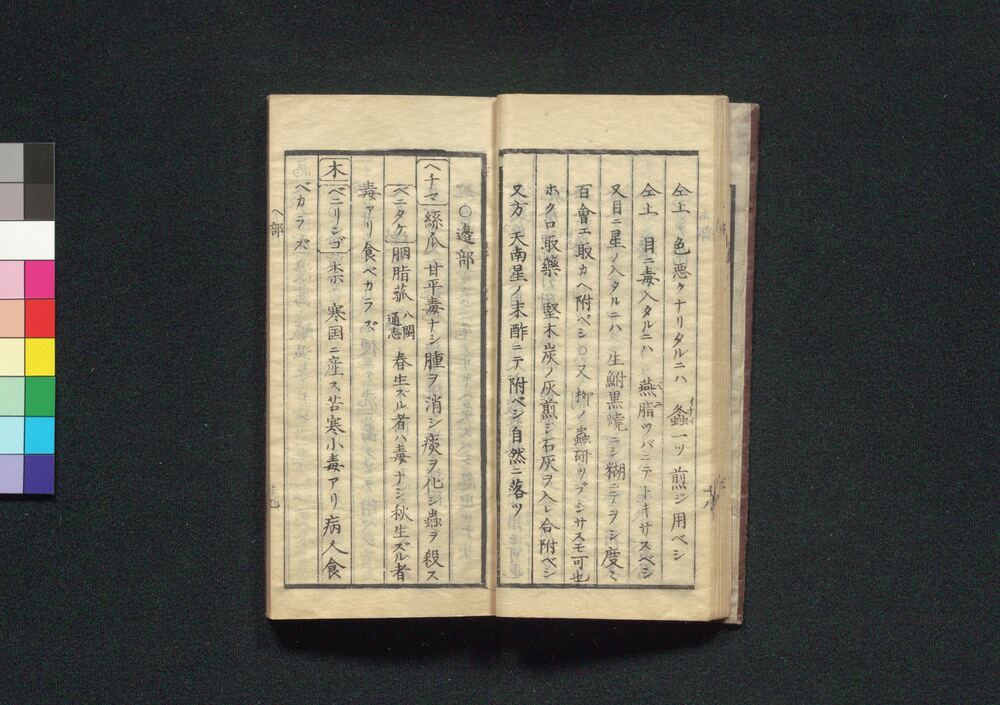 仝上 色悪クナリタルニハ 螽一ツ煎ジ用ベシ
仝上 目ニ毒入タルニハ 燕脂ツバニテトキサスベシ
又目ニ星ノ入タルニハ 生鮒黒焼ニシ糊ニテヲシ度〻
百會エ取カヘ附ベシ○又 柳ノ蟲研ツブシサスモ可也
ホクロ取藥 堅木炭ノ灰煎ジ石灰ヲ入レ合附ベシ
又方 天南星ノ末酢ニテ附ベシ自然ニ落ツ
○邊部
ヘチマ 絲瓜 甘平毒ナシ腫ヲ消シ痰ヲ化シ蟲ヲ殺ス
ベニタケ 胭脂菰 八閩通志 春生ズル者ハ毒ナシ秋生ズル者
毒アリ食ベカラズ
木 ベニリンゴ 柰 寒国ニ産ス苦寒小毒アリ病人食
ベカラズ
ヘ部